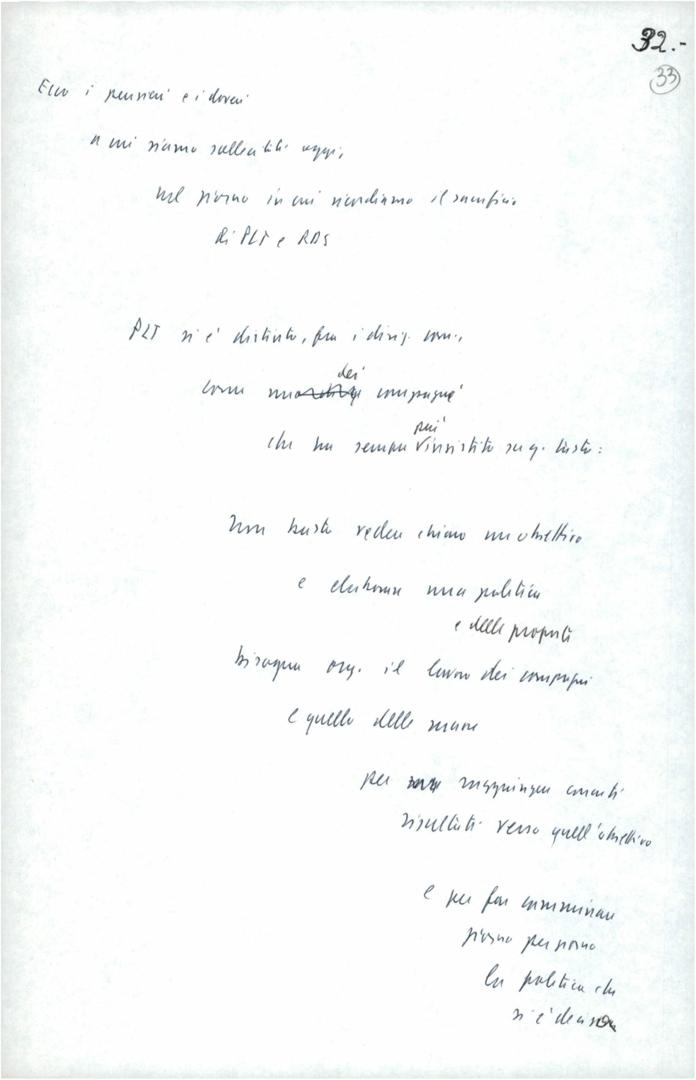 32.-
33
Ecco i pensieri e i doveri
a cui siamo sollecitati oggi,
nel giorno in cui ricordiamo il sacrificio
di PLT e RDS
PLT si è distinto, fra i dirig. com.,
dei
come compagni
più
che ha sempre insistito su q. tasto:
Non basta vedere chiaro un obiettivo
e elaborare una politica
e delle proposte
bisogna org. il lavoro dei compagni
e quello delle masse
per raggiungere
risultati verso quell'obiettivo
e per far camminare
giorno per giorno
la politica che
si è decisa